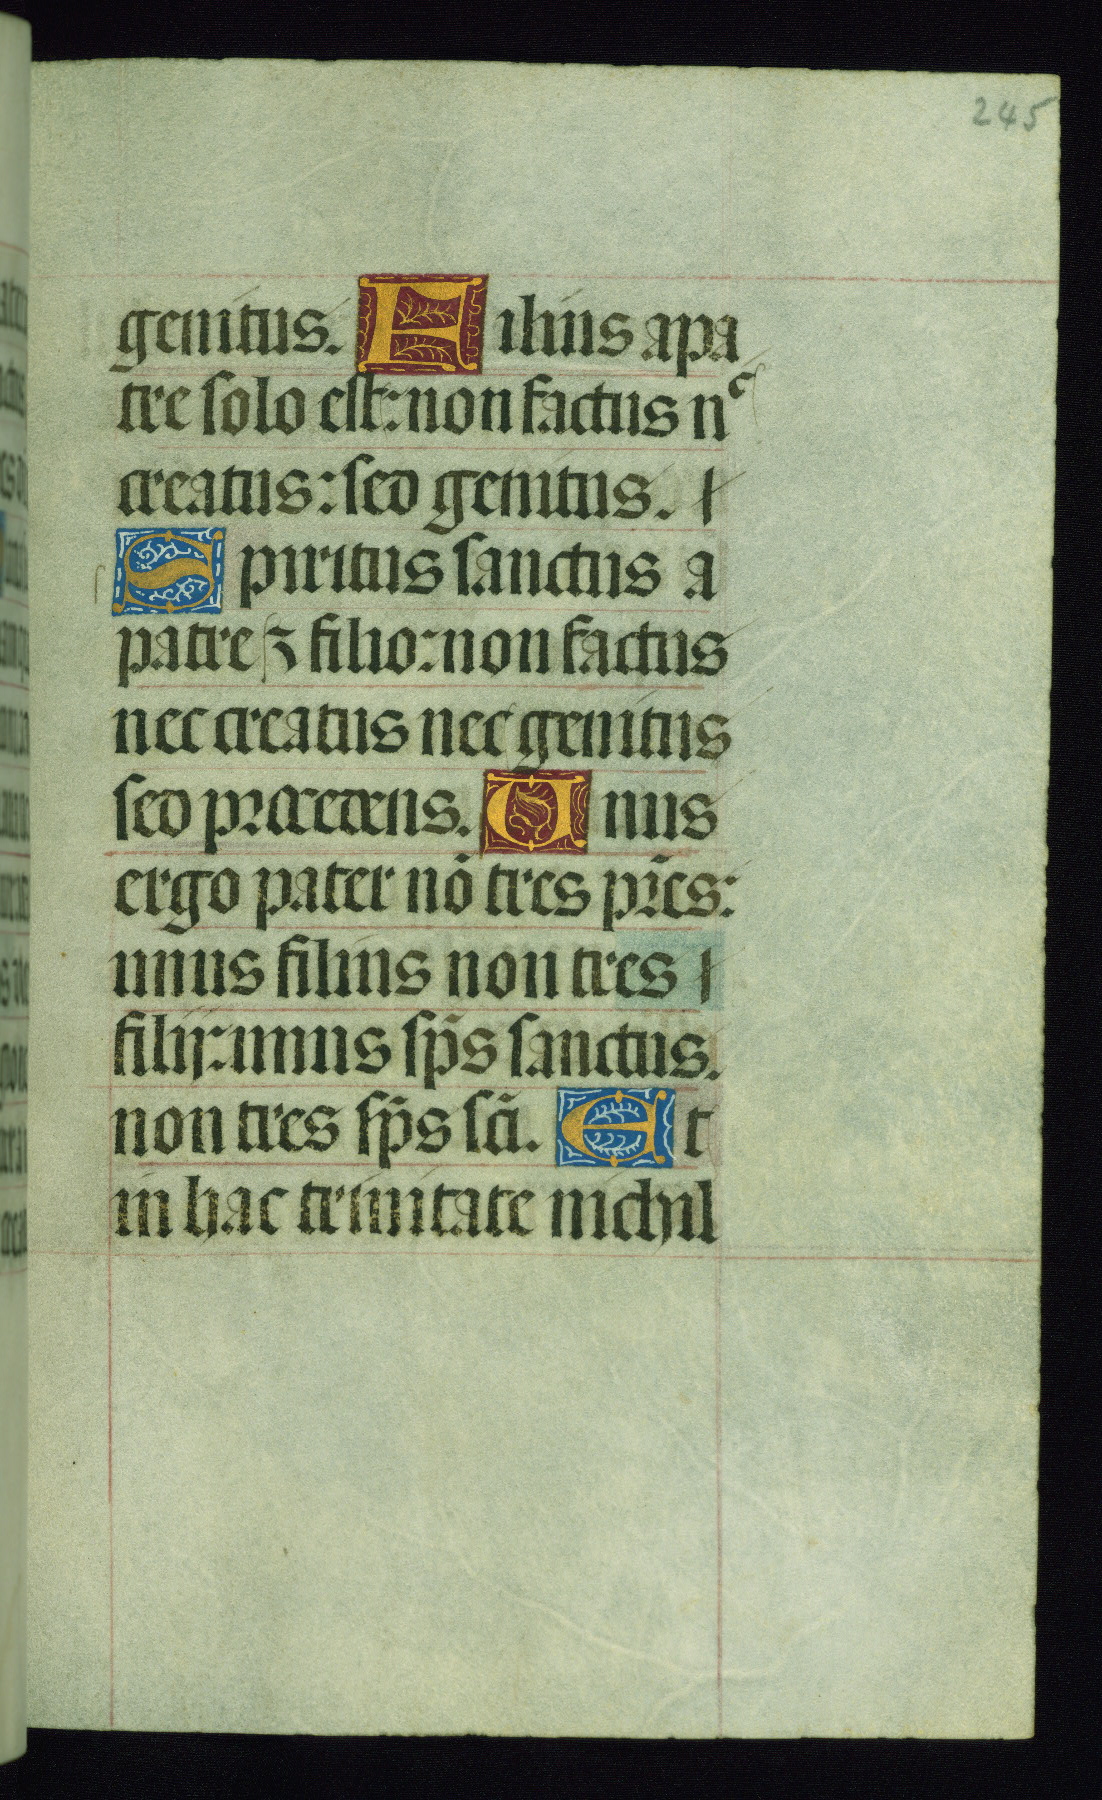 245
genitus. Filius a pa
tre solo est: non factus nᶜ
creatus: sed genitus.
Spiritus sanctus a
patre ⁊ filio: non factus
nec creatus nec genitus
sed procedens. Unus
ergo pater nō tres pr̄es:
unus filius non tres
filii: unus sp̄s sanctus.
non tres sp̄s sc̄i. Et
in hac trinitate nichil